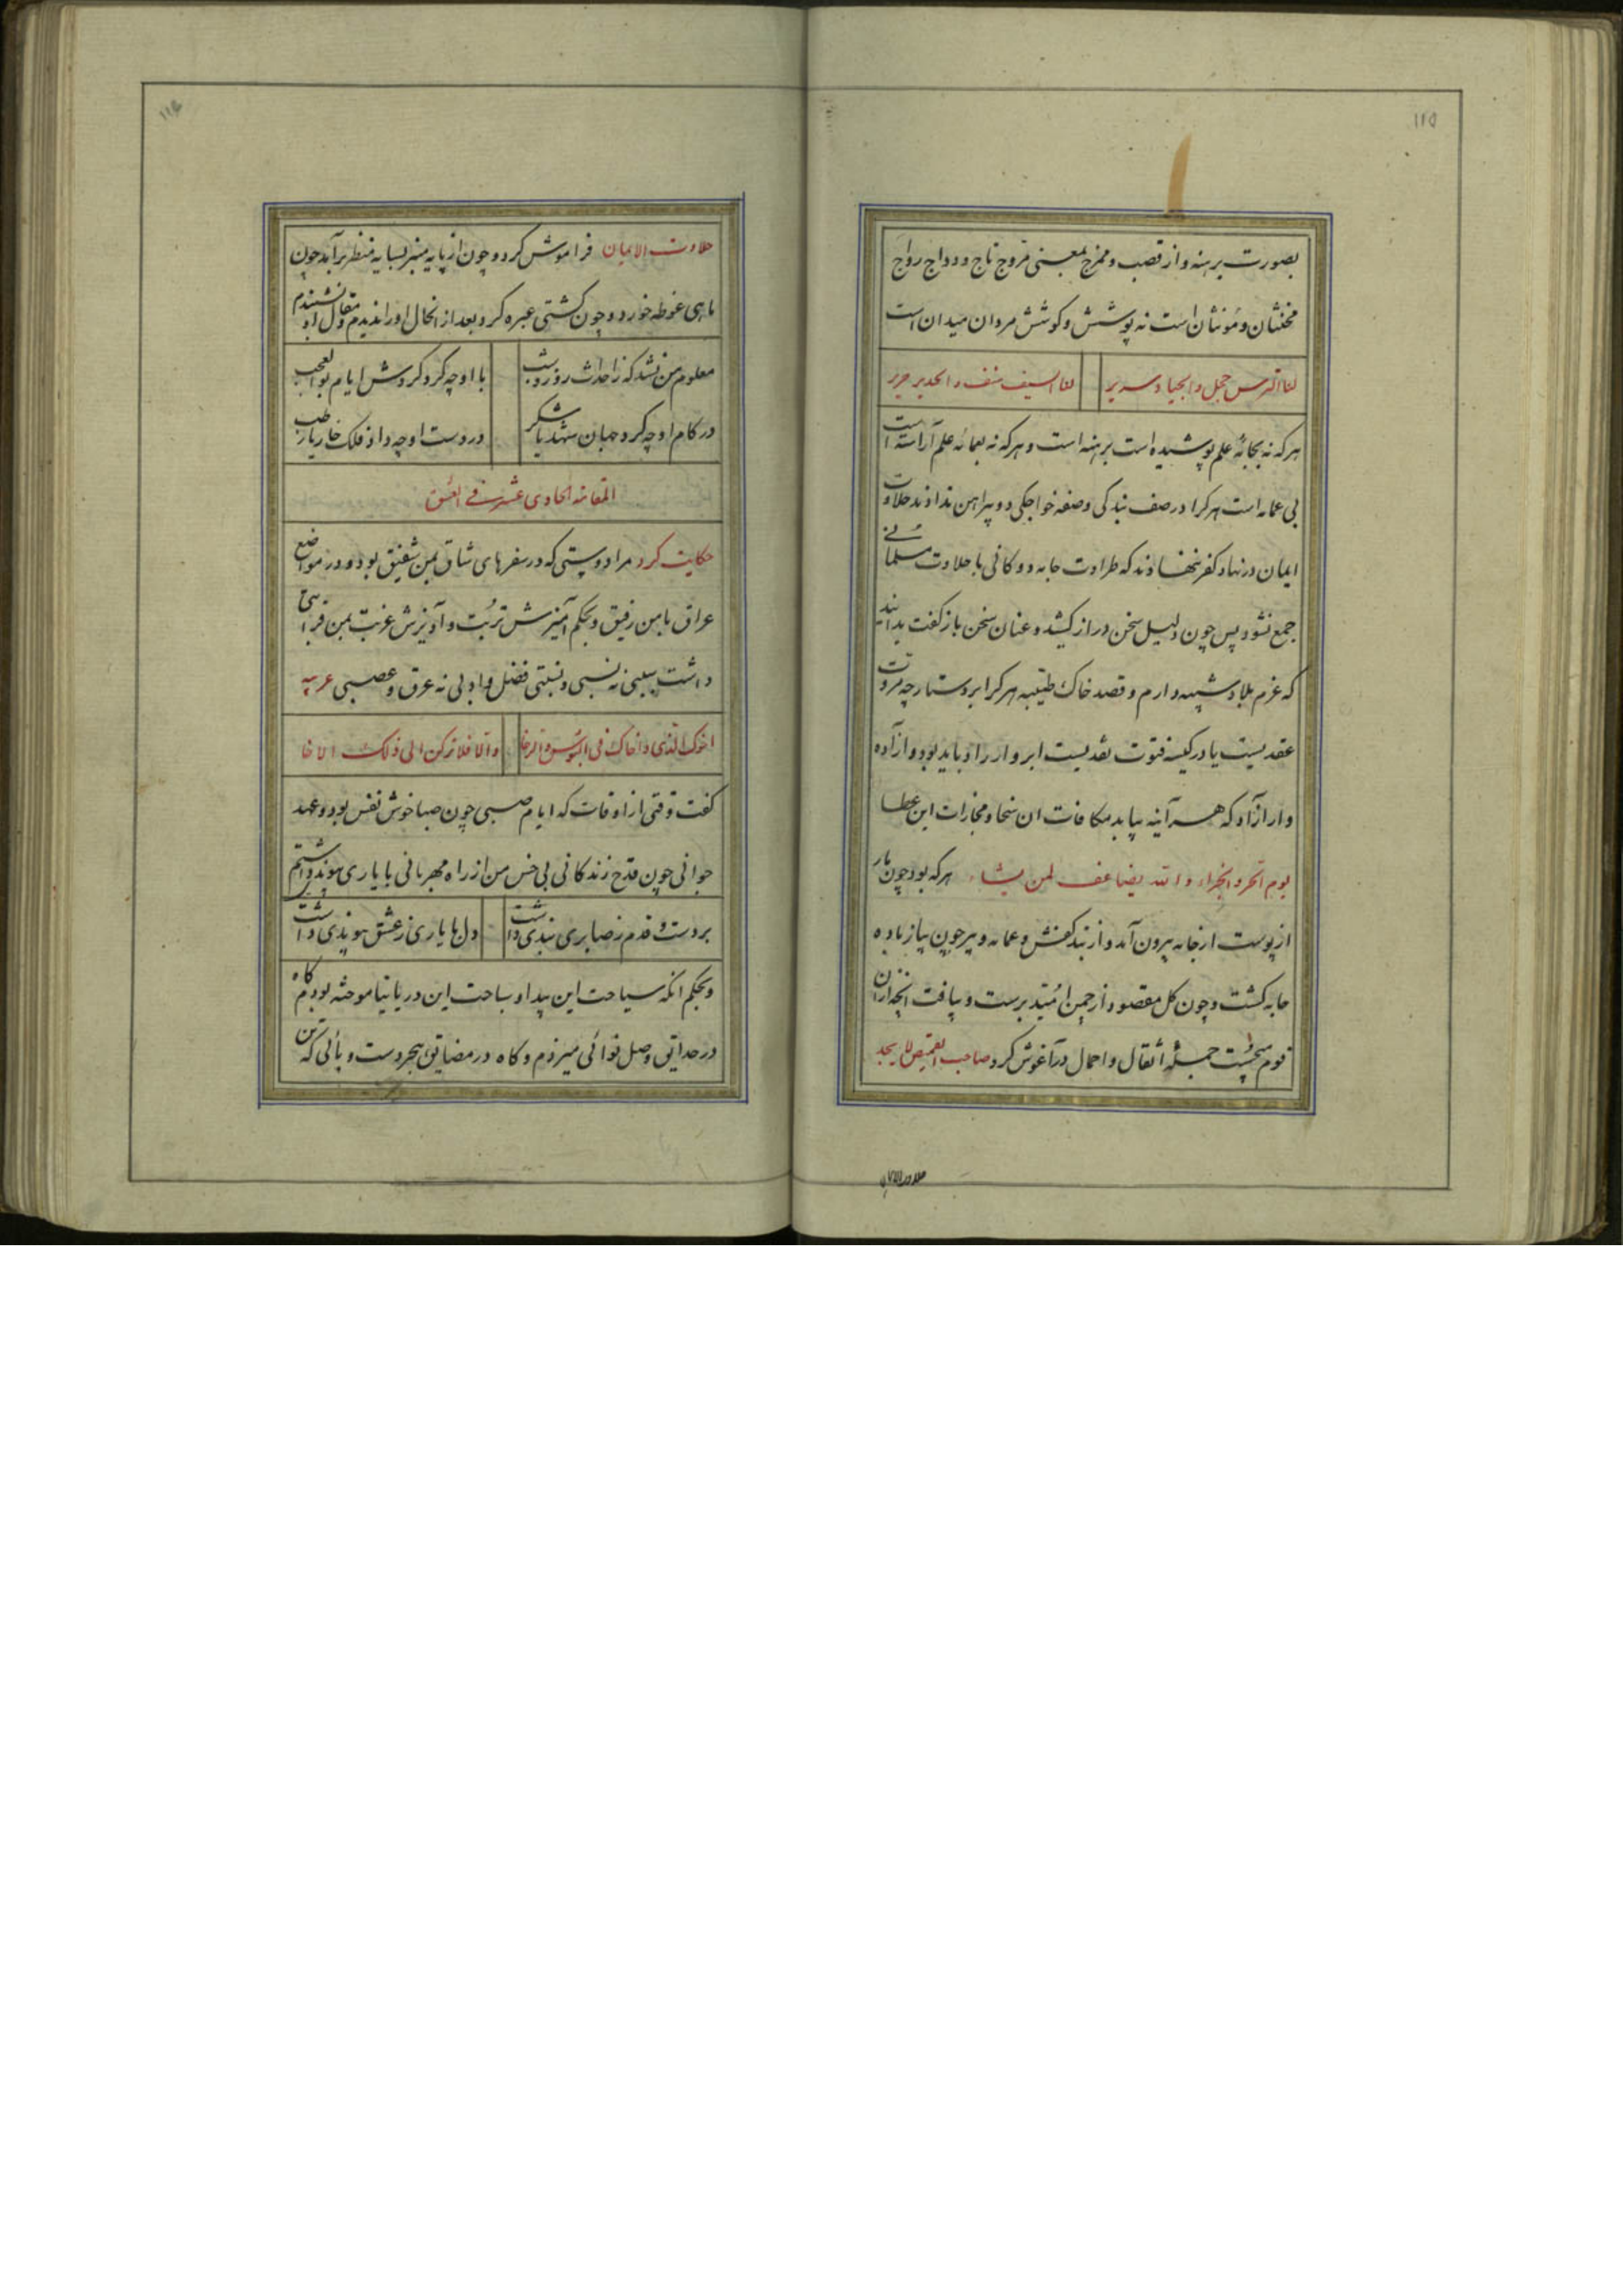 ۱۱۵
بصورت برهنه و از قصب و ممزج بمعنی فروج تاج و دواج رواج
مخنثان و مؤنثان است نه پوشش و کوشش مردان میدان است
لنا الترس حجل والجیاد سریر لنا السیف والحدید حریر
هر که نه بجامهٔ علم پوشیده است برهنه است و هر که نه بعمامه علم آراسته است
بی عمامه است هر کرا در صف بندکی و صفه خواجکی دو پیراهن نداذند حلاوت
ایمان در نهاد کفر ننهاذند که طراوت جامه دوکانی با حلاوت مسلمانی
جمع نشود پس چون دلیل سخن دراز کشید و عنان سخن باز کفت بدانید
که عزم بلاد شبیه دارم و قصد خاک طیبه هر کرا بر دستارچه مروت
عقدیست یا در کیسه فتوت نقدیست ابروار راد باید بود و آزاده
وار آزاد که هر آینه بیابد مکافات ان سخا و مجازات این عطا
یوم الحر والجزاء والله یضاعف لمن یشاء هر که بود چون مار
از پوست از جامه بیرون آمد و از بند کفش و عمامه و پیر چون پیاز باده
جامه کشت و چون کل مقصود از چمن امید برست و بیافت انچه از ان
قوم بجست جملهٔ اثقال و احمال در آغوش کرد صاحب القمیص لا یجد
حلاوت الایمان
۱۱۶
حلاوت الایمان فراموش کرد و چون از پایه منبر بسایه منظر برآمد چون
ماهی غوطه خورد و چون کشتی عبره کرد و بعد از انحال او را ندیدم و مقال او نشنیدم
معلوم من نشد که ز احداث روز و شب با او چه کرد کردش ایام بوالعجب
در کام او چه کرد جهان شهد یا شکر در دست او چه داذ فلک خار یا رطب
المقامة الحادی عشرت فی العشق
حکایت کرد مرا دوستی که در سفرهای شاق بمن شفیق بود و در مواضع
عراق با من رفیق و بحکم آمیزش تربت و آویزش غربت بمن قرابتی
داشت سببی نه نسبی و نسبتی فضل و ادبی نه عرق و عصبی عربیه
اخوک الذی واخاک فی البؤس والرخا والا فلا ترکن الی ذلک الاخا
کفت وقتی از اوقات که ایام صبی چون صبا خوش نفس بود و عهد
جوانی چون قدح زندکانی بی خس من از راه مهربانی با یاری پیوندی داشتم
بر دست و قدم ز صابری بندی داشت دل با یاری ز عشق پیوندی داشت
و بحکم انکه سیاحت این بیدا و سباحت این دریا نیاموخته بودم کاه
در حدایق وصل نوائی میزدم و کاه در مضایق هجر دست و پائی که تن